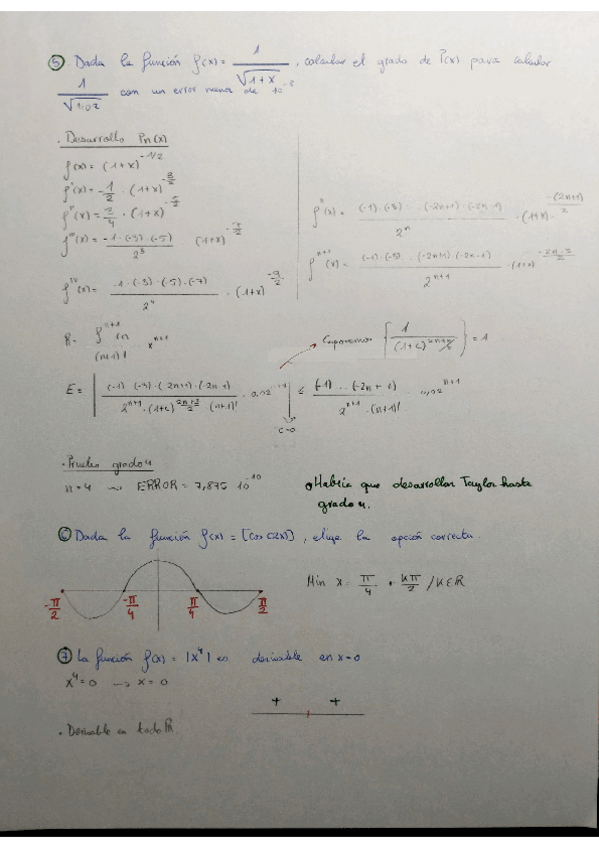 ⑤ Dada la función f(x) = 1/√(1+x), calcular el grado de P(x) para calcular
1/√1.02 con un error menor de 10⁻⁸
· Desarrollo Pn(x)
f(x) = (1+x)^(-1/2)
f'(x) = -1/2 · (1+x)^(-3/2)
f''(x) = 3/4 · (1+x)^(-5/2)
f'''(x) = -1·(-3)·(-5)/2³ (1+x)^(-7/2)
f^IV(x) = -1·(-3)·(-5)·(-7)/2⁴ · (1+x)^(-9/2)
fⁿ(x) = (-1)·(-3)...(-2n+1)·(-2n-1)/2ⁿ · (1+x)^(-(2n+1)/2)
fⁿ⁺¹(x) = (-1)·(-3)...(-2n+1)·(-2n-1)/2ⁿ⁺¹ · (1+x)^(-2n-3/2)
R = fⁿ⁺¹(c)/(n+1)! xⁿ⁺¹
Suponemos {1/(1+c)^(2n+3/2)} = 1
E = |(-1)·(-3)·(-2n+1)·(-2n-1)/2ⁿ⁺¹·(1+c)^(2n+3/2)·(n+1)! · 0,02ⁿ⁺¹| ≤ (-1)...(-2n+1)/2ⁿ⁺¹·(n+1)! · 0,02ⁿ⁺¹
c=0
· Prueba grado 4
n = 4 → ERROR = 7,875 · 10⁻¹⁰
Habría que desarrollar Taylor hasta
grado 4.
⑥ Dada la función f(x) = [cos(2x)], elige la opción correcta.
-π/2 -π/4 π/4 π/2
Min x = π/4 + kπ/2 / k∈R
⑦ La función f(x) = |x⁴| es derivable en x=0
x⁴=0 → x=0
+ +
· Derivable en todo R.